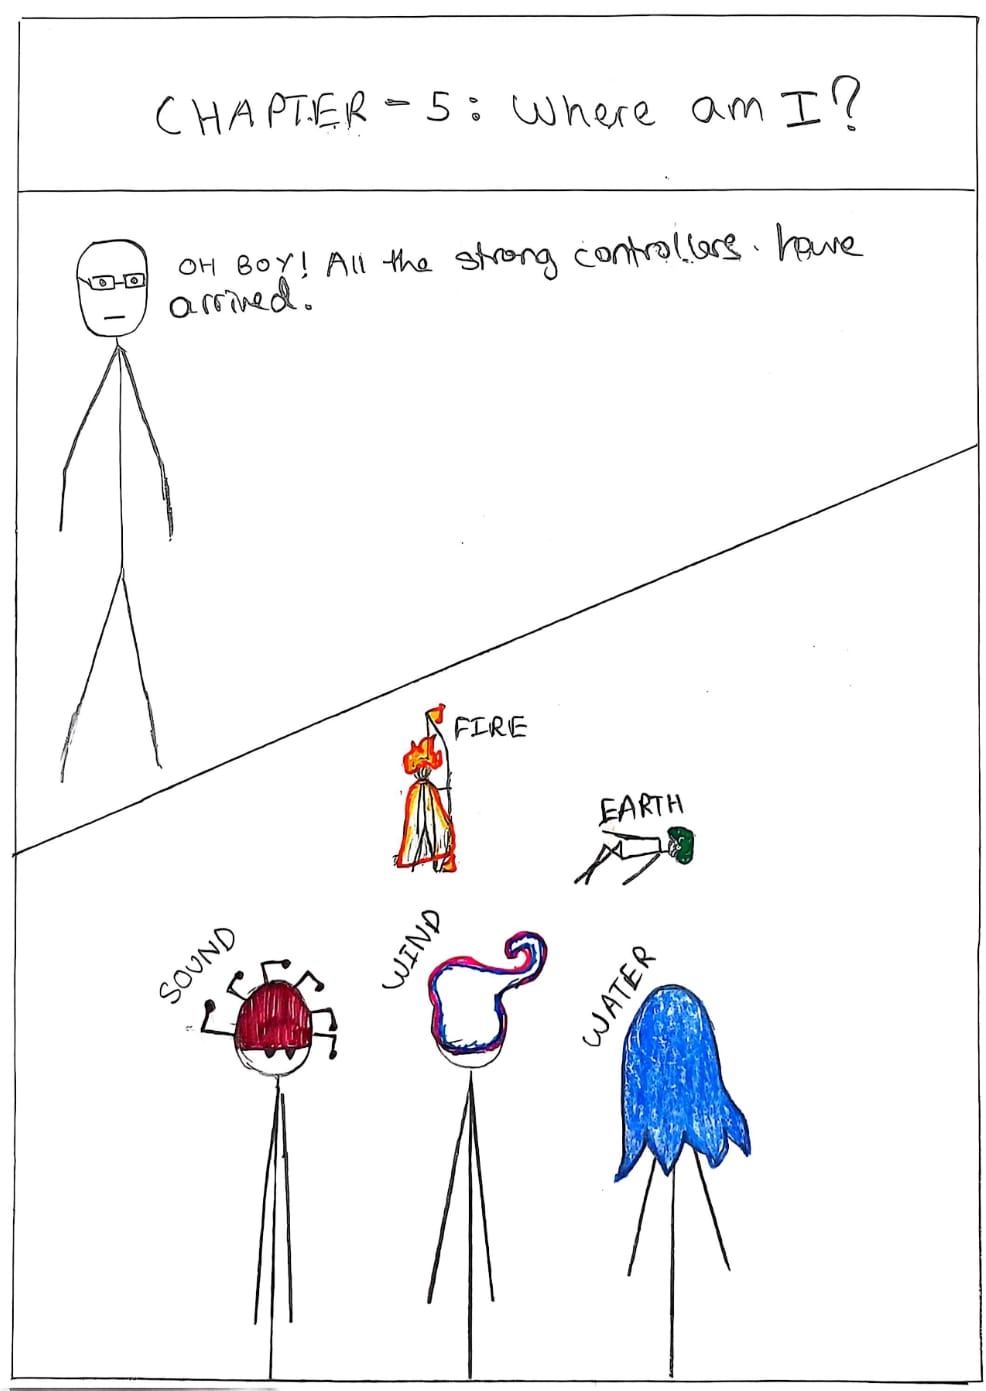 CHAPTER - 5: Where am I?
OH BOY! All the strong controllers. have
arrived.
FIRE
EARTH
SOUND
WIND
WATER